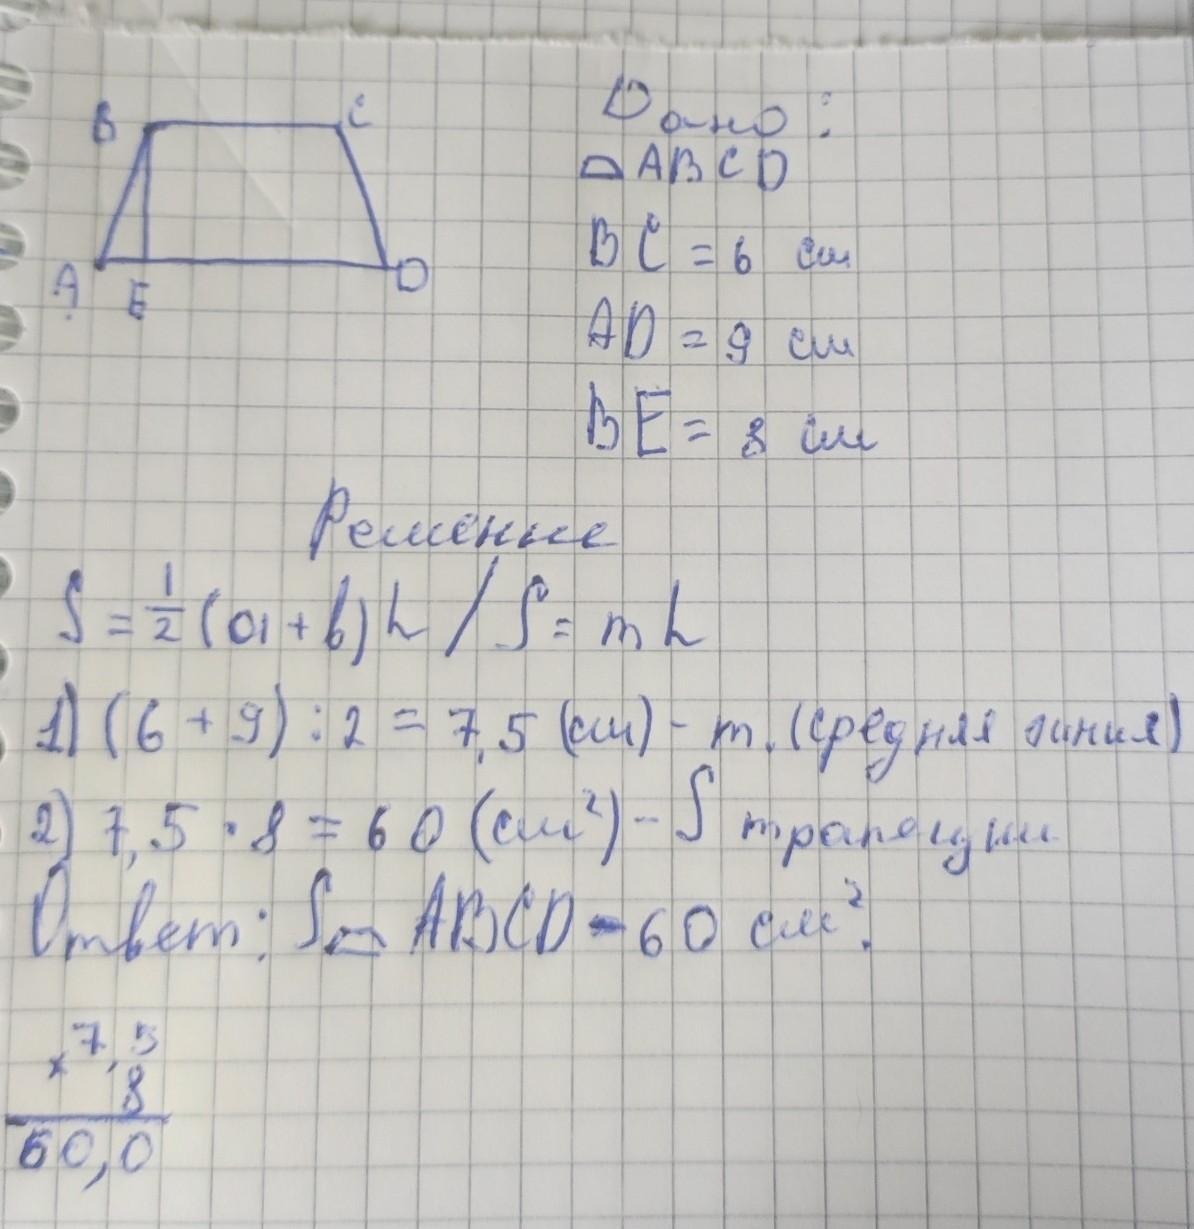 B C
A E D
Дано:
⏢ABCD
BC = 6 см
AD = 9 см
BE = 8 см
Решение
S = 1/2 (a + b) h / S = m h
1) (6 + 9) : 2 = 7,5 (см) - m. (средняя линия)
2) 7,5 · 8 = 60 (см²) - S трапеции
Ответ: S⏢ ABCD - 60 см².
× 7,5
8
60,0